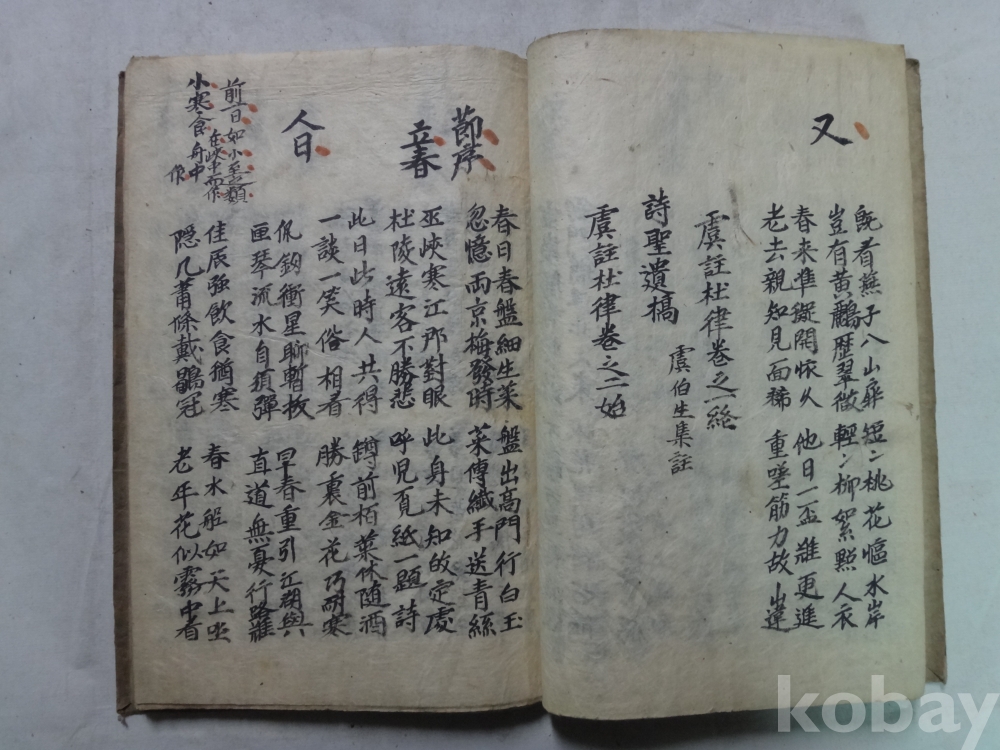 又
既看燕子入山扉 短〻桃花臨水岸
豈有黃鸝歷翠微 輕〻柳絮點人衣
春来準擬開懷久 他日一盃難更進
老去親知見面稀 重嗟筋力故山違
虞註杜律卷之一終
虞伯生集註
詩聖遺稿
虞註杜律卷之二始
節序
立春
春日春盤細生菜 盤出高門行白玉
忽憶兩京梅發時 菜傳纖手送青絲
巫峽寒江那對眼 此身未知敀定處
杜陵遠客不勝悲 呼児覓紙一題詩
人日
此日此時人共得 罇前栢葉休随酒
一談一笑俗相看 勝裏金花巧耐寒
佩釰衝星聊暫拔 早春重引江湖興
匣琴流水自須彈 直道無憂行路難
前一日如小至類
在峽中而作
小寒食舟中
作
佳辰強飮食猶寒 春水船如天上坐
隱几蕭條戴鶡冠 老年花似霧中看
kobay